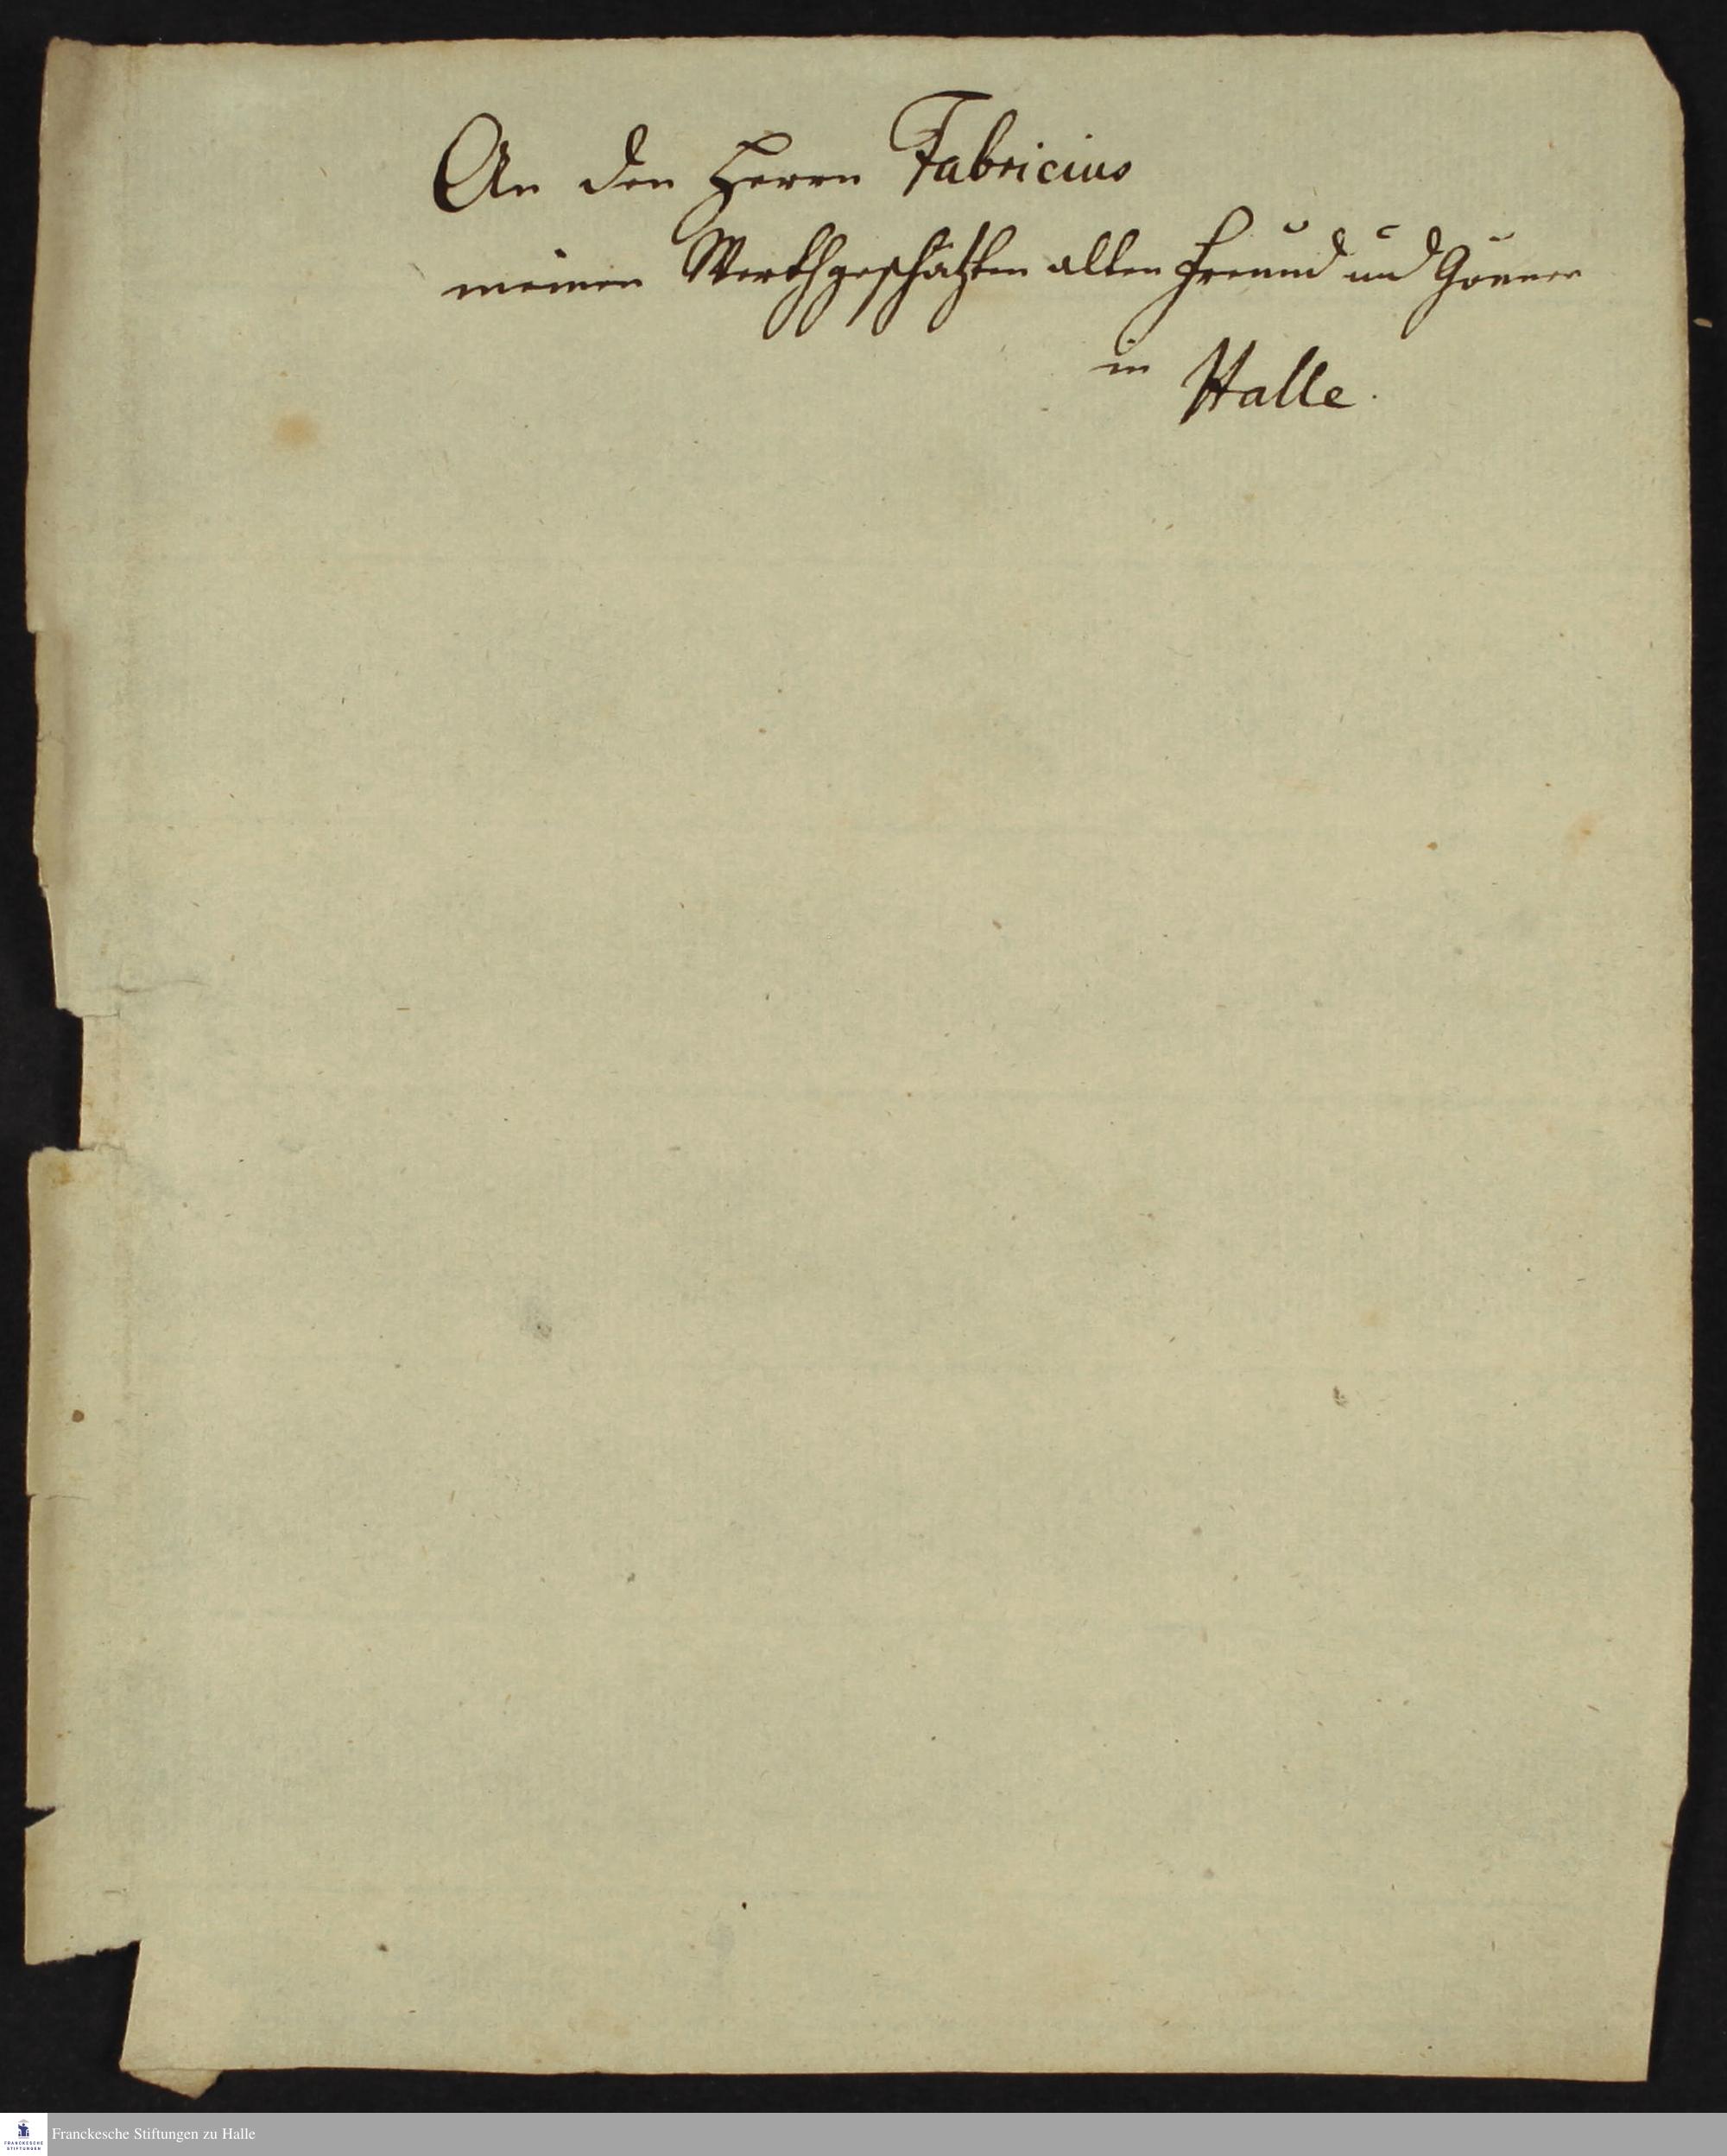 An den Herrn Fabricius
meinen Werthgeschätzten alten Freund und Gönner
in Halle.
FRANCKESCHE
STIFTUNGEN
Franckesche Stiftungen zu Halle